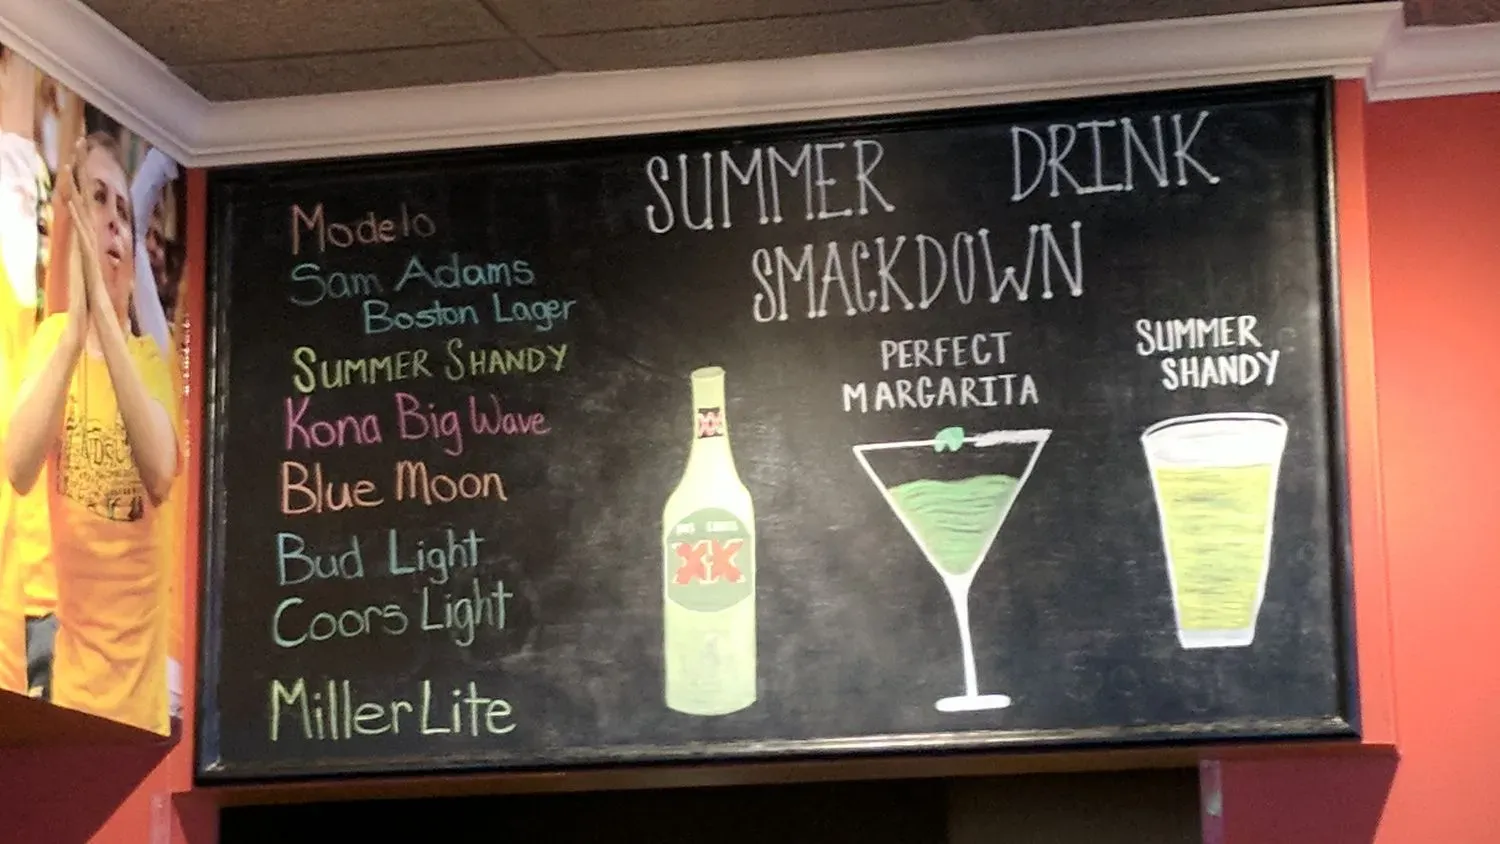 Modelo
Sam Adams
Boston Lager
SUMMER SHANDY
Kona Big Wave
Blue Moon
Bud Light
Coors Light
Miller Lite
SUMMER DRINK
SMACKDOWN
XX
PERFECT
MARGARITA
SUMMER
SHANDY